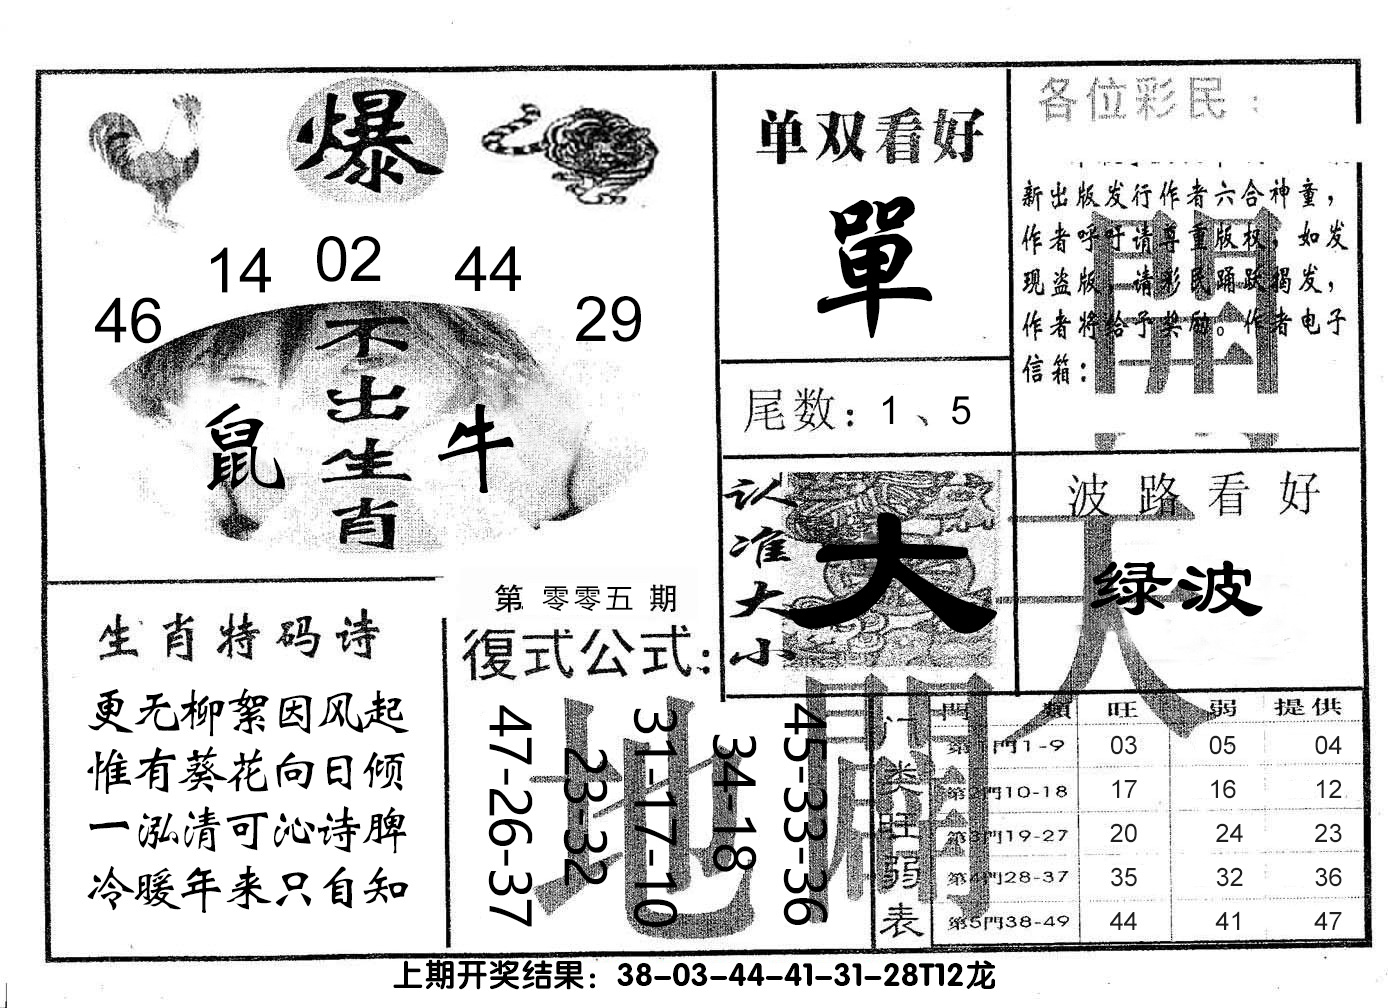 爆
46 14 02 44 29
不出生肖
鼠 牛
生肖特码诗
更无柳絮因风起
惟有葵花向日倾
一泓清可沁诗脾
冷暖年来只自知
第零零五期
復式公式：
47-26-37
23-32
31-17-10
34-18
45-33-36
单双看好
單
尾数：1、5
认准大小
大
各位彩民：
新出版发行作者六合神童，
作者呼吁请尊重版权，如发
现盗版，请彩民踊跃揭发，
作者将给予奖励。作者电子
信箱：
波路看好
绿波
天
地
開
门类旺弱表
門類 旺 弱 提供
第1門1-9 03 05 04
第2門10-18 17 16 12
第3門19-27 20 24 23
第4門28-37 35 32 36
第5門38-49 44 41 47
上期开奖结果：38-03-44-41-31-28T12龙